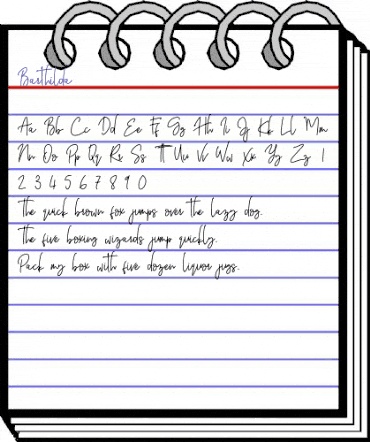 Barthilda
Aa Bb Cc Dd Ee Ff Gg Hh Ii Jj Kk Ll Mm
Nn Oo Pp Qq Rr Ss Tt Uu Vv Ww Xx Yy Zz 1
2 3 4 5 6 7 8 9 0
The quick brown fox jumps over the lazy dog.
The five boxing wizards jump quickly.
Pack my box with five dozen liquor jugs.